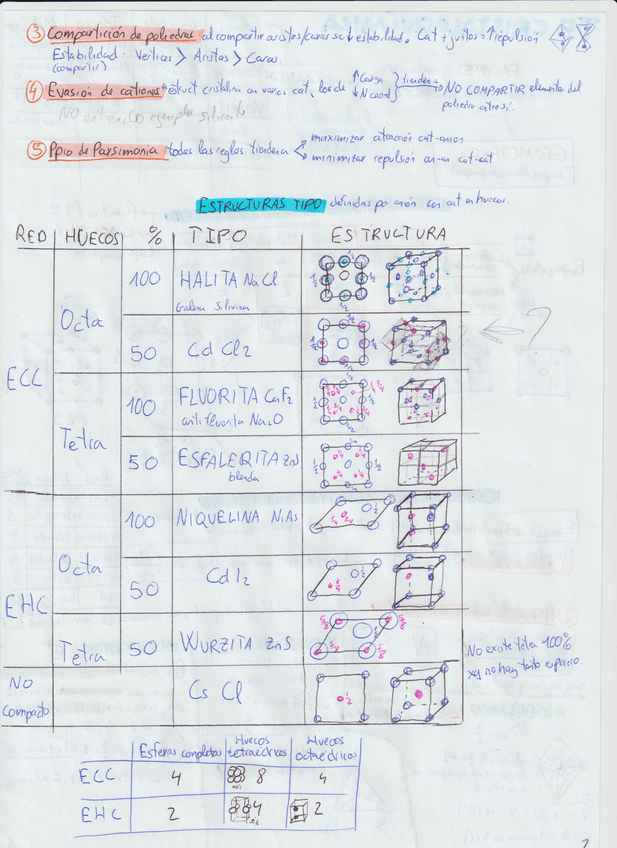 ③ Compartición de poliedros al compartir aristas/caras se ↓ estabilidad. Cat+ juntos = ↑ repulsión
Estabilidad: Vertices > Aristas > Caras.
(compartir)
④ Evasión de cationes estruct cristalina con varios cat, los de ↑ Carga ↓ N coord tienden a → NO COMPARTIR elementos del
poliedro entre sí.
No entiendo ejemplo silicato
⑤ Ppio de Parsimonia todas las reglas tienden a
maximizar atracción cat-anion
minimizar repulsión an-an cat-cat
ESTRUCTURAS TIPO definidas por anión con cat en huecos.
RED HUECOS % TIPO ESTRUCTURA
ECC
Octa
100 HALITA NaCl
Galena Silvina
50 CdCl2
?
Tetra
100 FLUORITA CaF2
antifluorita Na2O
50 ESFALERITA ZnS
blenda
EHC
Octa
100 NIQUELINA NiAs
50 CdI2
Tetra 50 WURZITA ZnS
No existe tetra 100%
xq no hay tanto espacio.
NO
Compacto
CsCl
Esferas completas Huecos tetraédricos Huecos octaédricos
ECC 4 8 4
EHC 2 4 2